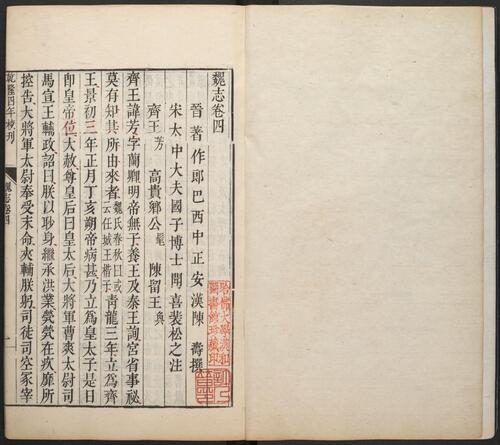 魏志卷四
晉著作郎巴西中正安漢陳壽撰
宋太中大夫國子博士聞喜裴松之注
齊王芳 高貴鄉公髦 陳留王奐
齊王諱芳字蘭卿明帝無子養王及秦王詢宮省事祕
莫有知其所由來者魏氏春秋曰或云任城王楷子青龍三年立爲齊
王景初三年正月丁亥朔帝病甚乃立爲皇太子是日
卽皇帝位大赦尊皇后曰皇太后大將軍曹爽太尉司
馬宣王輔政詔曰朕以眇身繼承洪業煢煢在疚靡所
控告大將軍太尉奉受末命夾輔朕躬司徒司空冢宰
乾隆四年校刊
魏志卷四
一
哈佛大學漢和圖書館珍藏印